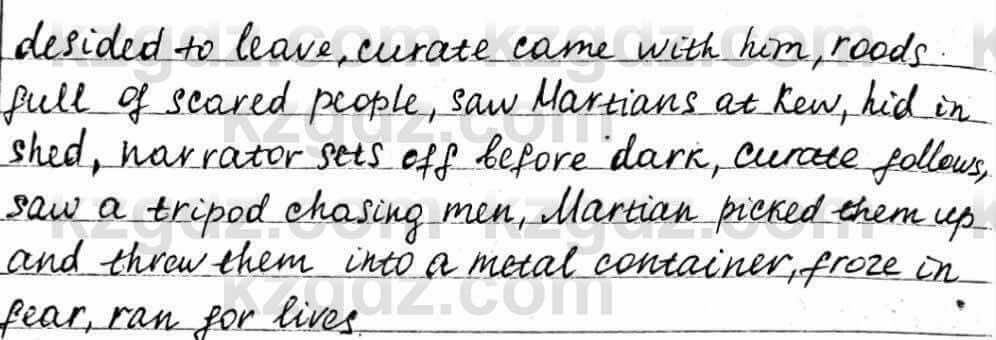 desided to leave, curate came with him, roods
full of scared people, saw Martians at Kew, hid in
shed, narrator sets off before dark, curate follows,
saw a tripod chasing men, Martian picked them up
and threw them into a metal container, froze in
fear, ran for lives.
kzgdz.com